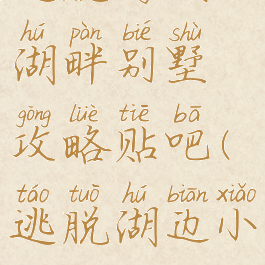 hú pàn bié shù
湖畔别墅
gōng lüè tiē bā
攻略贴吧(
táo tuō hú biān xiǎo
逃脱湖边小